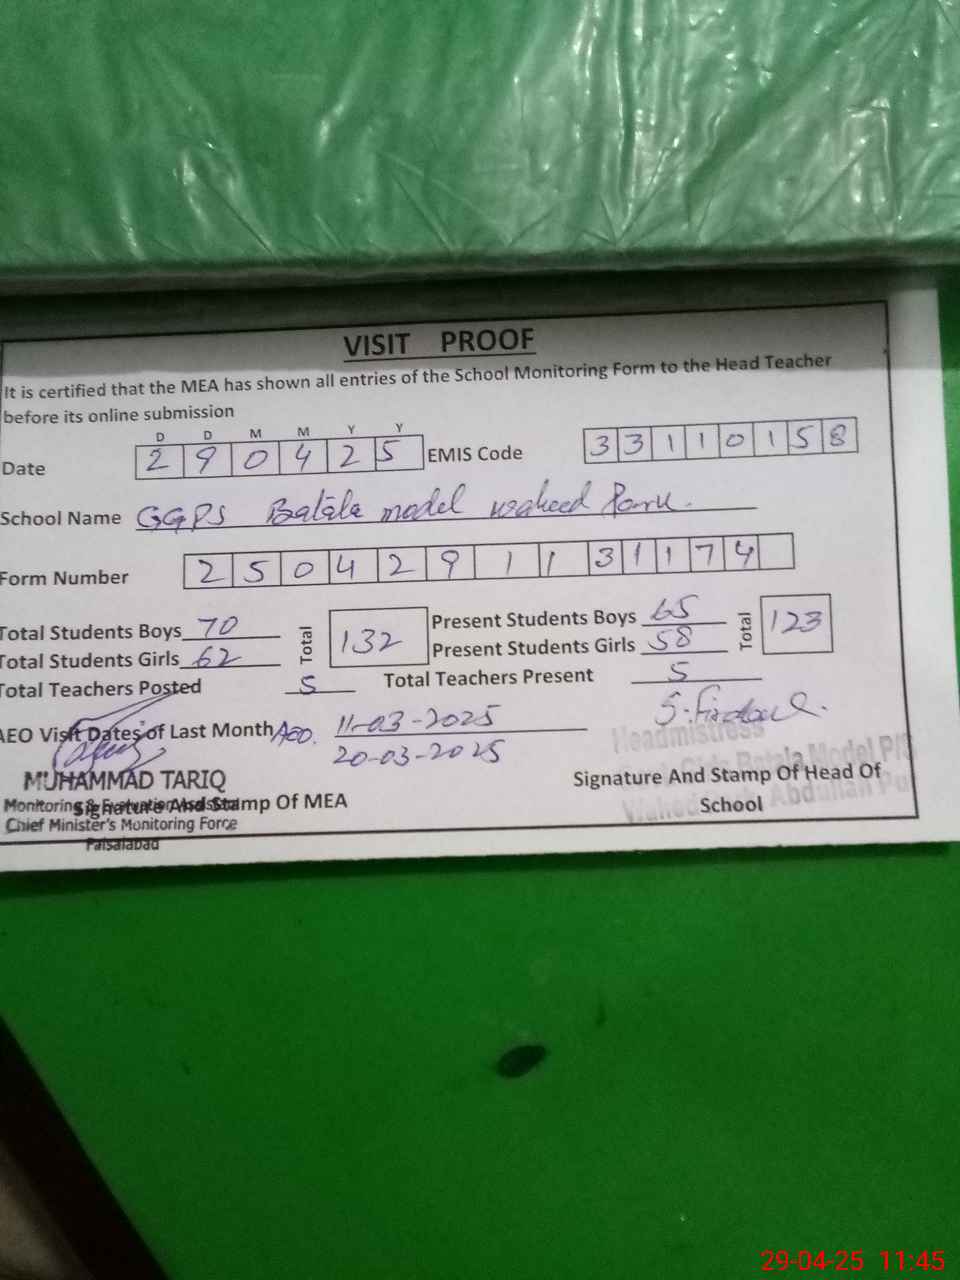 VISIT PROOF
It is certified that the MEA has shown all entries of the School Monitoring Form to the Head Teacher
before its online submission
D D M M Y Y
Date 2 9 0 4 2 5 EMIS Code 3 3 1 1 0 1 5 8
School Name GGPS Batala model waheed Park.
Form Number 2 5 0 4 2 9 1 1 3 1 1 7 4
Total Students Boys 70 Total 132 Present Students Boys 65 Total 123
Total Students Girls 62 Present Students Girls 58
Total Teachers Posted 5 Total Teachers Present 5
AEO Visit Dates of Last Month AEO. 11-03-2025
20-03-2025
S. Firdous
Headmistress
Batala Model P/S
Abdullah Pu
MUHAMMAD TARIQ
Monitoring & Evaluation Assistant
Signature And Stamp Of MEA
Chief Minister's Monitoring Force
Faisalabad
Signature And Stamp Of Head Of
School
29-04-25 11:45